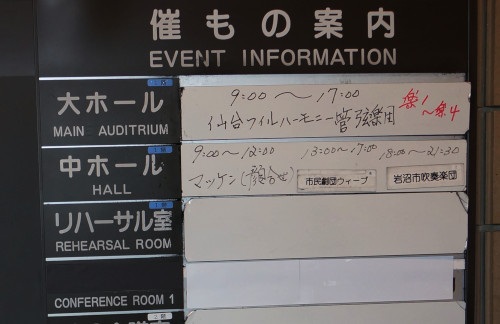 催もの案内
EVENT INFORMATION
大ホール
MAIN AUDITRIUM
9:00～17:00
仙台フィルハーモニー管弦楽団
楽1～楽4
中ホール
HALL
9:00～12:00 13:00～17:00 18:00～21:30
マッケン(顔合せ) 市民劇団ウィーブ 岩沼市吹奏楽団
リハーサル室
REHEARSAL ROOM
CONFERENCE ROOM 1